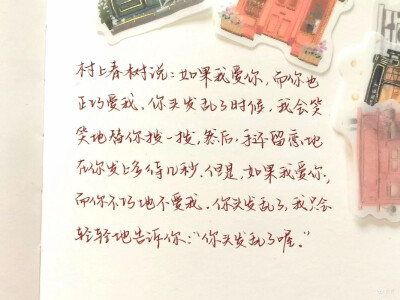 村上春树说:如果我爱你,而你也
正巧爱我.你头发乱了时候,我会笑
笑地替你拨一拨,然后,手还留恋地
在你发上多待几秒.但是,如果我爱你,
而你不巧地不爱我.你头发乱了,我只会
轻轻地告诉你:“你头发乱了喔.”